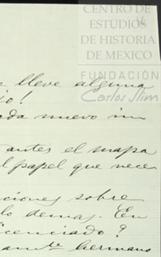 CENTRO DE
ESTUDIOS
DE HISTORIA
DE MEXICO
FUNDACIÓN
Carlos Slim
lleve alguna
nuevo mi
antes el mapa
el papel que nece
ciones sobre
lo demas. En
licenciado?
amte hermano